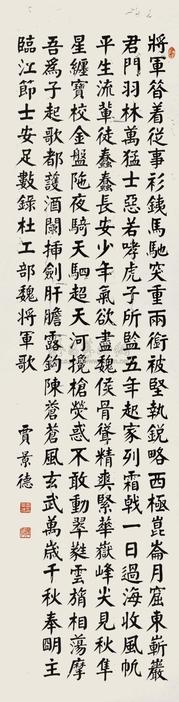 將軍昝着從事衫銕馬馳突重兩銜被堅執銳略西極崑崙月窟東嶄巖
君門羽林萬猛士惡若哮虎子所監五年起家列霜戟一日過海收風帆
平生流輩徒蠢蠢長安少年氣欲盡魏侯骨聳精爽緊華嶽峰尖見秋隼
星纏寶校金盤陁夜騎天駟超天河攙槍熒惑不敢動翠蕤雲旓相蕩摩
吾爲子起歌都護酒闌揷劍肝膽露鈎陳蒼蒼風玄武萬歲千秋奉明主
臨江節士安足數錄杜工部魏將軍歌
賈景德